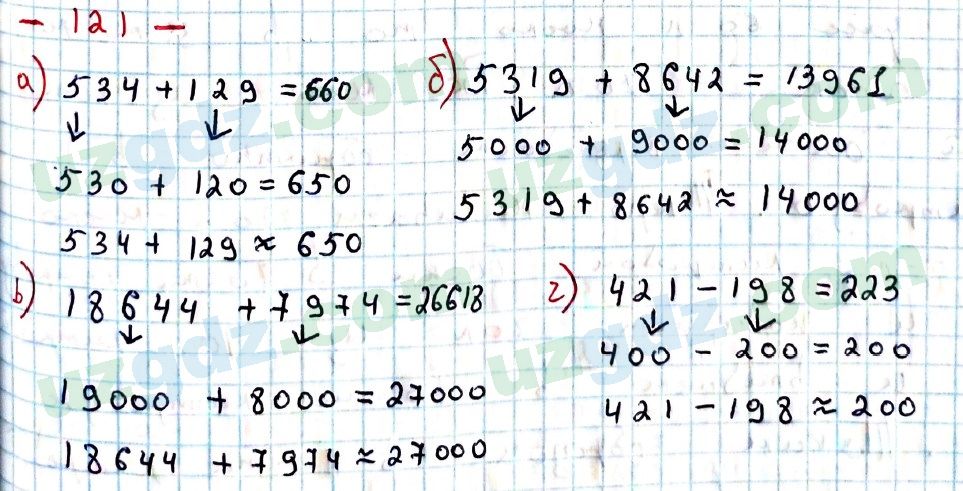 - 121 -
а) 534 + 129 = 660
530 + 120 = 650
534 + 129 ≈ 650
б) 5319 + 8642 = 13961
5000 + 9000 = 14000
5319 + 8642 ≈ 14000
в) 18644 + 7974 = 26618
19000 + 8000 = 27000
18644 + 7974 ≈ 27000
г) 421 - 198 = 223
400 - 200 = 200
421 - 198 ≈ 200
uzgdz.com
uzgdz.com
uzgdz.com
uzgdz.com